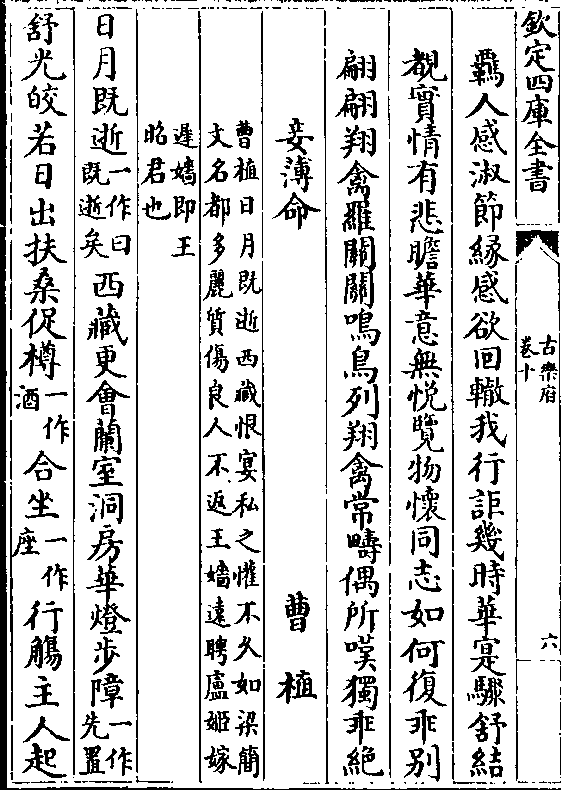 欽定四庫全書
古樂府
卷十
六
羇人感淑節縁感欲回轍我行詎幾時華寔驟舒結
覩實情有悲瞻華意無悅覽物懷同志如何復乖別
翩翩翔禽羅關關鳴鳥列翔禽常疇偶所嘆獨乖絶
妾薄命 曹植
曹植日月既逝西藏恨宴私之懽不久如梁簡
文名都多麗質傷良人不返王嬙遠聘盧姬嫁
遲嬙即王
昭君也
日月既逝一作曰既逝矣西藏更會蘭室洞房華燈步障一作先置
舒光皎若日出扶桑促樽一作酒合坐一作座行觴主人起